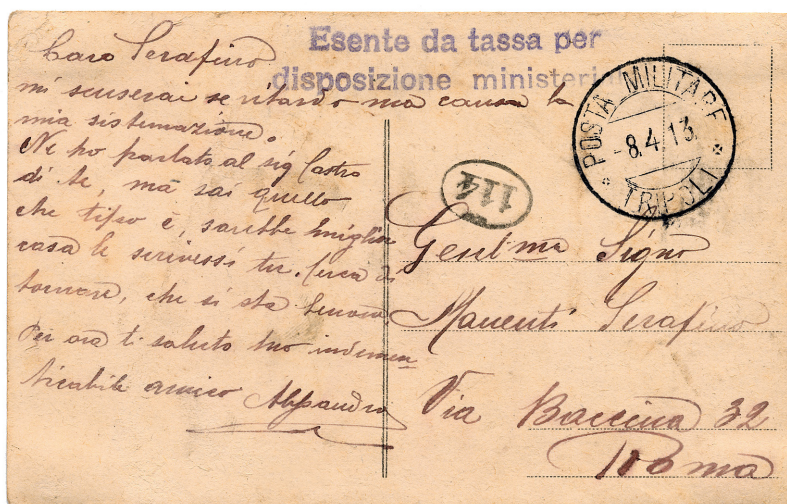 Esente da tassa per
disposizione ministeri
Caro Serafino
mi scuserai se ritardo ma causa la
mia sistemazione.
Ne ho parlato al sig Castro
di te, ma sai quello
che tipo è, sarebbe miglior
cosa le scrivessi tu. Cerca di
tornare, che si sta benone.
Per ora ti saluto tuo indimen
ticabile amico Alessandro
POSTA MILITARE
-8.4.13
TRIPOLI
114
Gentilma Signo
Manenti Serafino
Via Baccina 32
Roma